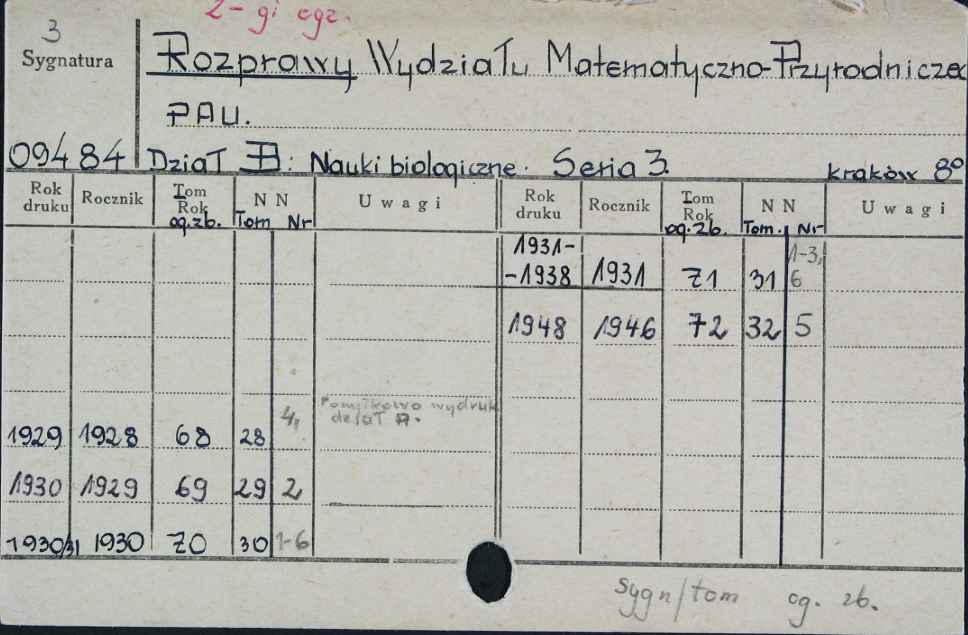 2-gi egz.
3
Sygnatura
Rozprawy Wydziału Matematyczno-Przyrodniczeg
PAU.
09484 Dział B: Nauki biologiczne. Seria 3. Kraków 8°
Rok druku Rocznik Tom Rok og.zb. N N Tom Nr Uwagi Rok druku Rocznik Tom Rok og.zb. N N Tom. Nr Uwagi
1931-1938 1931 71 31 1-3, 6
1948 1946 72 32 5
1929 1928 68 28 4, Pomyłkowo wydruk. dział A.
1930 1929 69 29 2
1930/31 1930 70 30 1-6
Sygn/tom og. zb.